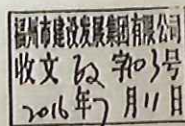 福州市建设发展集团有限公司
收文 政 字03号
2016年7月11日